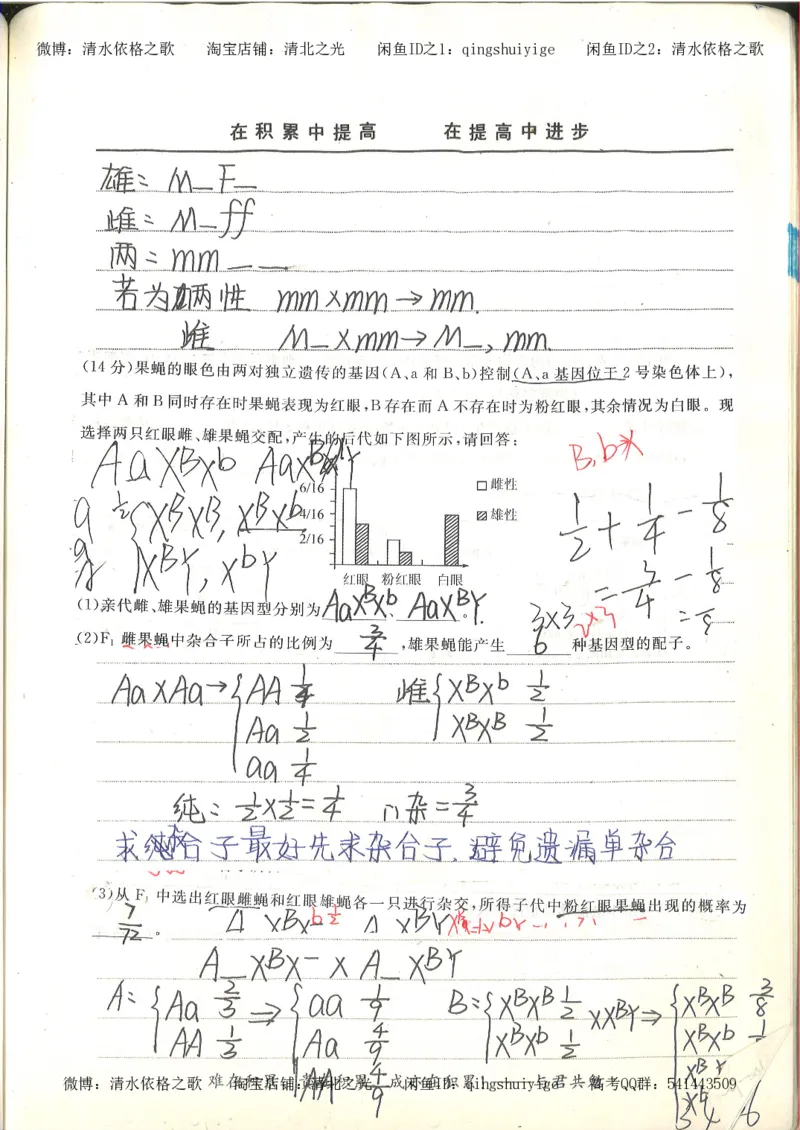 微博：清水依格之歌　淘宝店铺：清北之光　闲鱼ID之1：qingshuiyige　闲鱼ID之2：清水依格之歌
在积累中提高　在提高中进步
雄：M_F_
雌：M_ff
两：mm_ _
若为两性 mm×mm→mm.
雌 M_×mm→M_,mm.
(14分)果蝇的眼色由两对独立遗传的基因(A、a和B、b)控制(A、a基因位于2号染色体上),
其中A和B同时存在时果蝇表现为红眼,B存在而A不存在时为粉红眼,其余情况为白眼。现
选择两只红眼雌、雄果蝇交配,产生的后代如下图所示,请回答:
B,b→X
AaXBXb AaXBY
6/16
4/16
2/16
□雌性
雄性
XBXB, XBXb
XBY, XbY
1/2+1/4-1/8
=3/4-1/8
红眼 粉红眼 白眼
(1)亲代雌、雄果蝇的基因型分别为 AaXBXb、AaXBY。
3×3 2×3
(2)F1雌果蝇中杂合子所占的比例为 3/4 ,雄果蝇能产生 6 种基因型的配子。
Aa×Aa→{AA 1/4 雌{XBXb 1/2
Aa 1/2 XBXB 1/2
aa 1/4
纯：1/2×1/2=1/4 ∩杂=3/4
求纯合子最好先求杂合子,避免遗漏单杂合
(3)从F1中选出红眼雌蝇和红眼雄蝇各一只进行杂交,所得子代中粉红眼果蝇出现的概率为
7/72。
A_XBX-×A_XBY
A={Aa 2/3 ⇒{aa 1/9 B={XBXB 1/2 ×XBY⇒{XBXB 3/8
AA 1/3 Aa 4/9 XBXb 1/2 XBXb
AA 4/9 XBY
微博：清水依格之歌　淘宝店铺：清北之光　闲鱼ID：qingshuiyige　高考QQ群：541443509